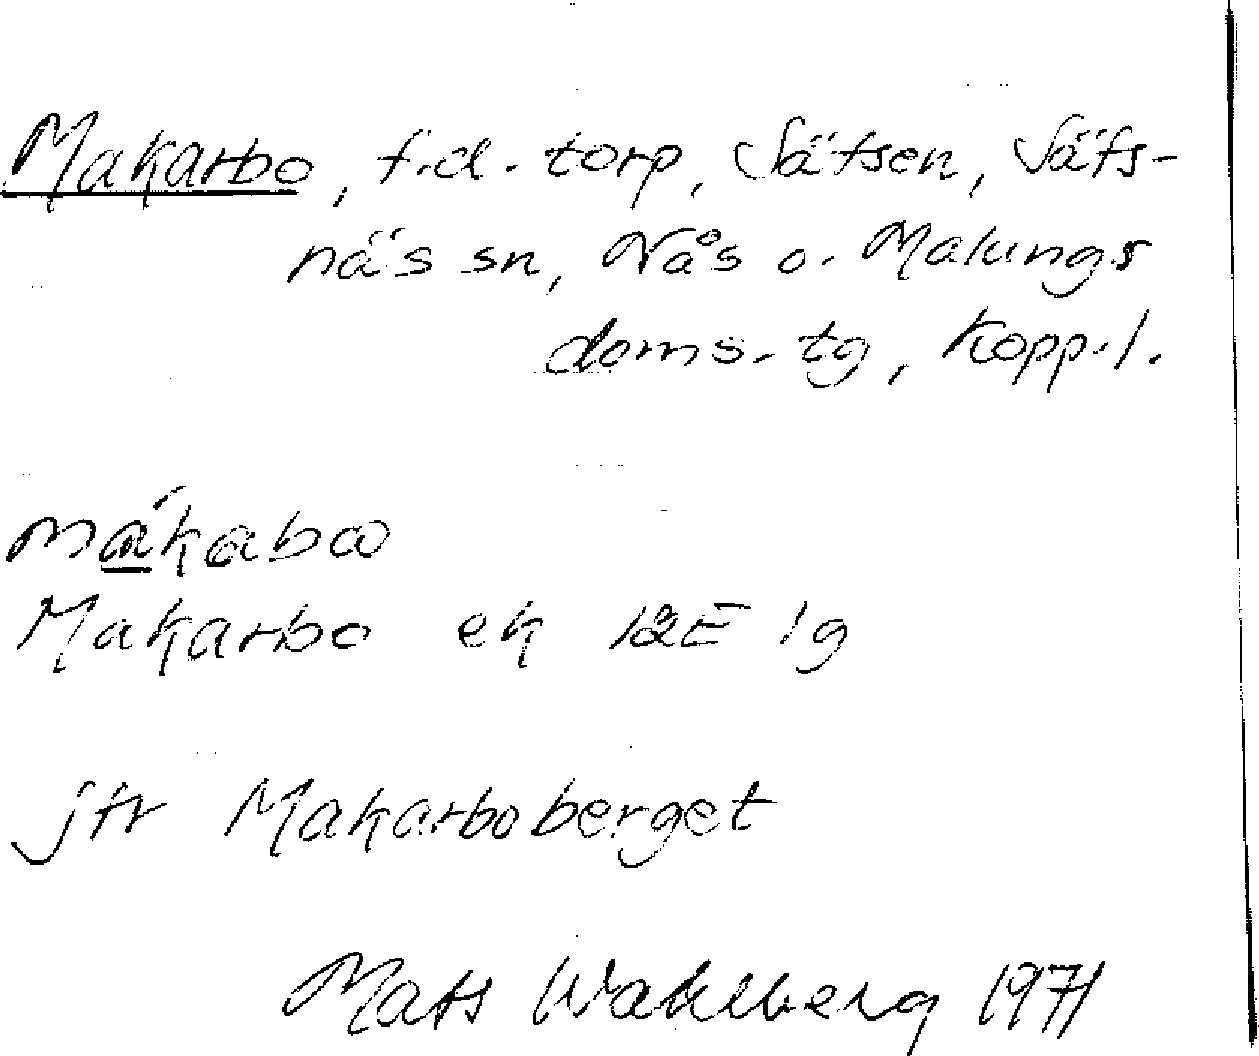 Makarbo, f.d. torp, Sätsen, Säfs-
näs sn, Nås o. Malungs
doms. tg, Kopp.l.
mákabω
Makarbo ek 12E 1g
jfr Makarboberget
Mats Wahlberg 1971